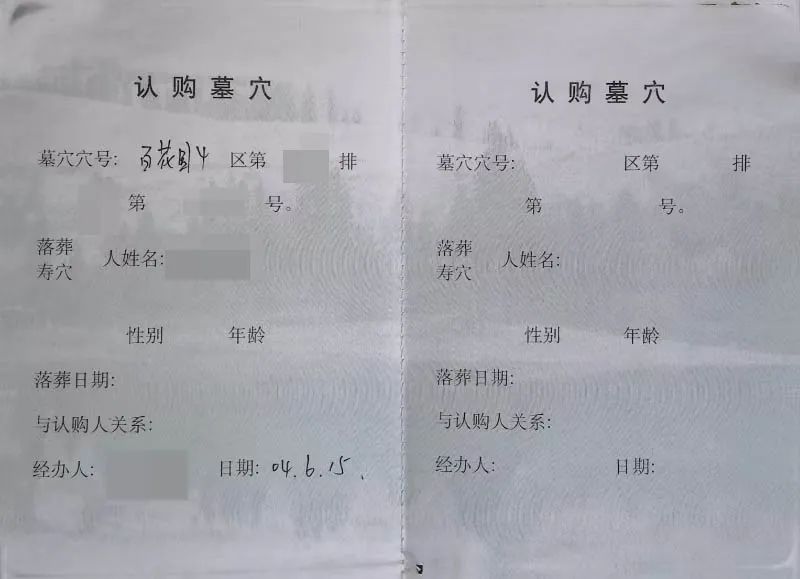 认购墓穴
墓穴穴号: 百花园4 区第 排
第 号。
落葬
寿穴 人姓名:
性别 年龄
落葬日期:
与认购人关系:
经办人: 日期: 04.6.15.
认购墓穴
墓穴穴号: 区第 排
第 号。
落葬
寿穴 人姓名:
性别 年龄
落葬日期:
与认购人关系:
经办人: 日期: